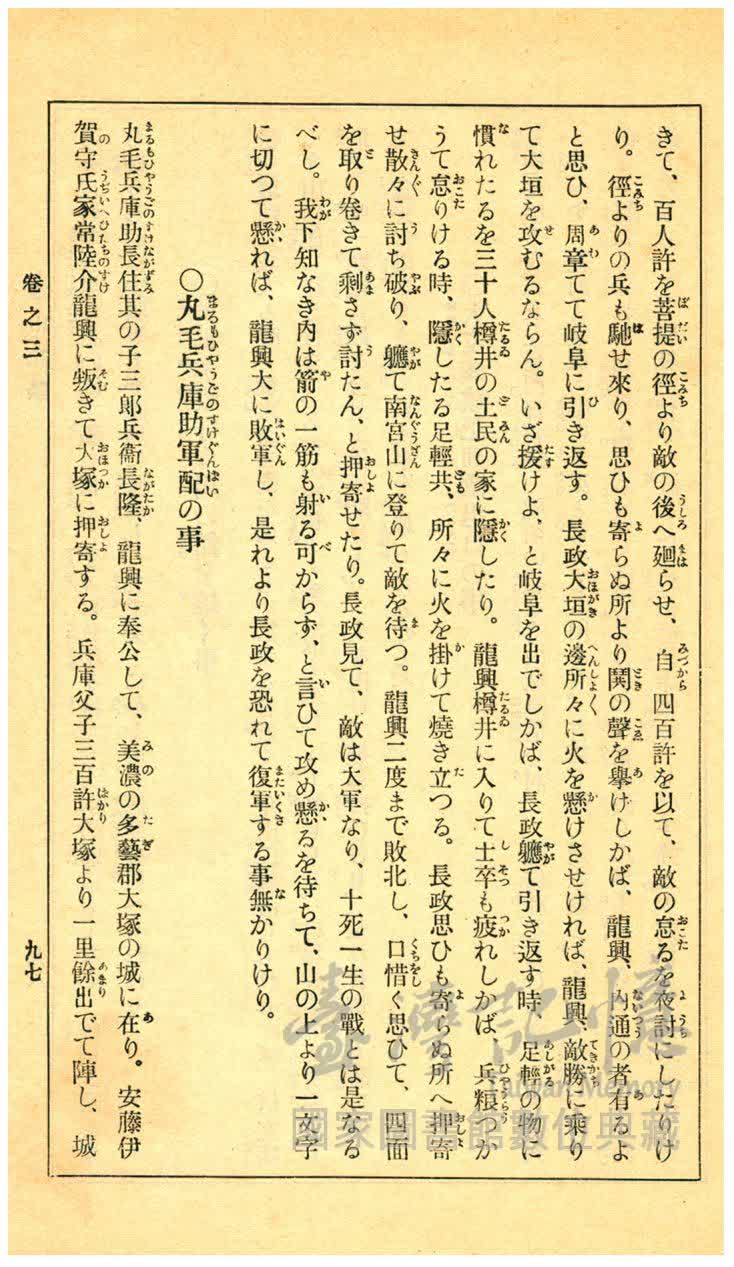 きて、百人許を菩提の徑より敵の後へ廻らせ、自四百許を以て、敵の怠るを夜討にしたりけ
り。徑よりの兵も馳せ來り、思ひも寄らぬ所より鬨の聲を擧けしかば、龍興、內通の者有るよ
と思ひ、周章てて岐阜に引き返す。長政大垣の邊所々に火を懸けさせければ、龍興、敵勝に乘り
て大垣を攻むるならん。いざ援けよ、と岐阜を出でしかば、長政軈て引き返す時、足輕の物に
慣れたるを三十人樽井の土民の家に隱したり。龍興樽井に入りて士卒も疲れしかば、兵粮つか
うて怠りける時、隱したる足輕共、所々に火を掛けて燒き立つる。長政思ひも寄らぬ所へ押寄
せ散々に討ち破り、軈て南宮山に登りて敵を待つ。龍興二度まで敗北し、口惜く思ひて、四面
を取り卷きて剩さず討たん、と押寄せたり。長政見て、敵は大軍なり、十死一生の戰とは是なる
べし。我下知なき內は箭の一筋も射る可からず、と言ひて攻め懸るを待ちて、山の上より一文字
に切つて懸れば、龍興大に敗軍し、是れより長政を恐れて復軍する事無かりけり。
〇丸毛兵庫助軍配の事
丸毛兵庫助長住其の子三郎兵衞長隆、龍興に奉公して、美濃の多藝郡大塚の城に在り。安藤伊
賀守氏家常陸介龍興に叛きて大塚に押寄する。兵庫父子三百許大塚より一里餘出でて陣し、城
卷之三
九七
臺灣記憶
Taiwan Memory
國家圖書館數位典藏